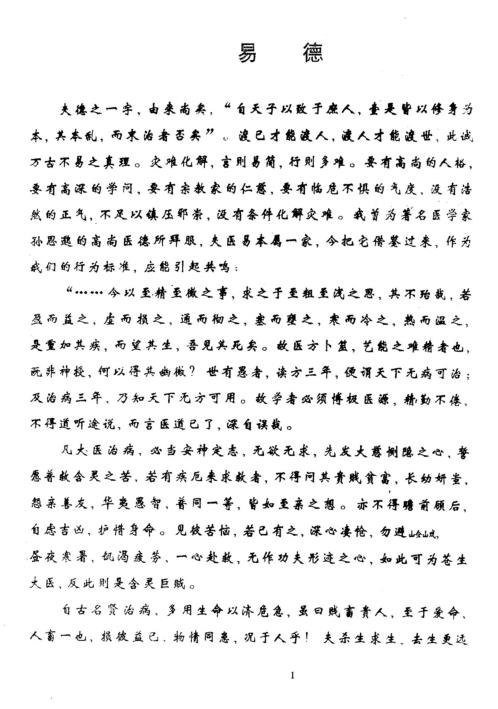 易 德
夫德之一字，由来尚矣，“自天子以致于庶人，壹是皆以修身为
本，其本乱，而末治者否矣”。渡己才能渡人，渡人才能渡世，此诚
万古不易之真理。灾难化解，言则易简，行则多难。要有高尚的人格，
要有高深的学问，要有宗教家的仁慈，要有临危不惧的气度，没有浩
然的正气，不足以镇压邪祟，没有条件化解灾难。我曾为著名医学家
孙思邈的高尚医德所拜服，夫医易本属一家，今把它借鉴过来，作为
我们的行为标准，应能引起共鸣：
“……今以至精至微之事，求之于至粗至浅之思，其不殆哉，若
盈而益之，虚而损之，通而彻之，塞而壅之，寒而冷之，热而温之，
是重加其疾，而望其生，吾见其死矣。故医方卜筮，艺能之难精者也，
既非神授，何以得其幽微？世有愚者，读方三年，便谓天下无病可治；
及治病三年，乃知天下无方可用。故学者必须博极医源，精勤不倦，
不得道听途说，而言医道已了，深自误哉。
凡大医治病，必当安神定志，无欲无求，先发大慈恻隐之心，誓
愿普救含灵之苦，若有疾厄来求救者，不得问其贵贱贫富，长幼妍蚩，
怨亲善友，华夷愚智、普同一等，皆如至亲之想。亦不得瞻前顾后，
自虑吉凶、护惜身命。见彼苦恼，若己有之，深心凄怆，勿避
昼夜寒暑、饥渴疲劳、一心赴救，无作功夫形迹之心，如此可为苍生
大医、反此则是含灵巨贼。
自古名贤治病，多用生命以济危急，虽曰贱畜贵人，至于爱命，
人畜一也，损彼益己、物情同患，况于人乎！夫杀生求生、去生更远
1